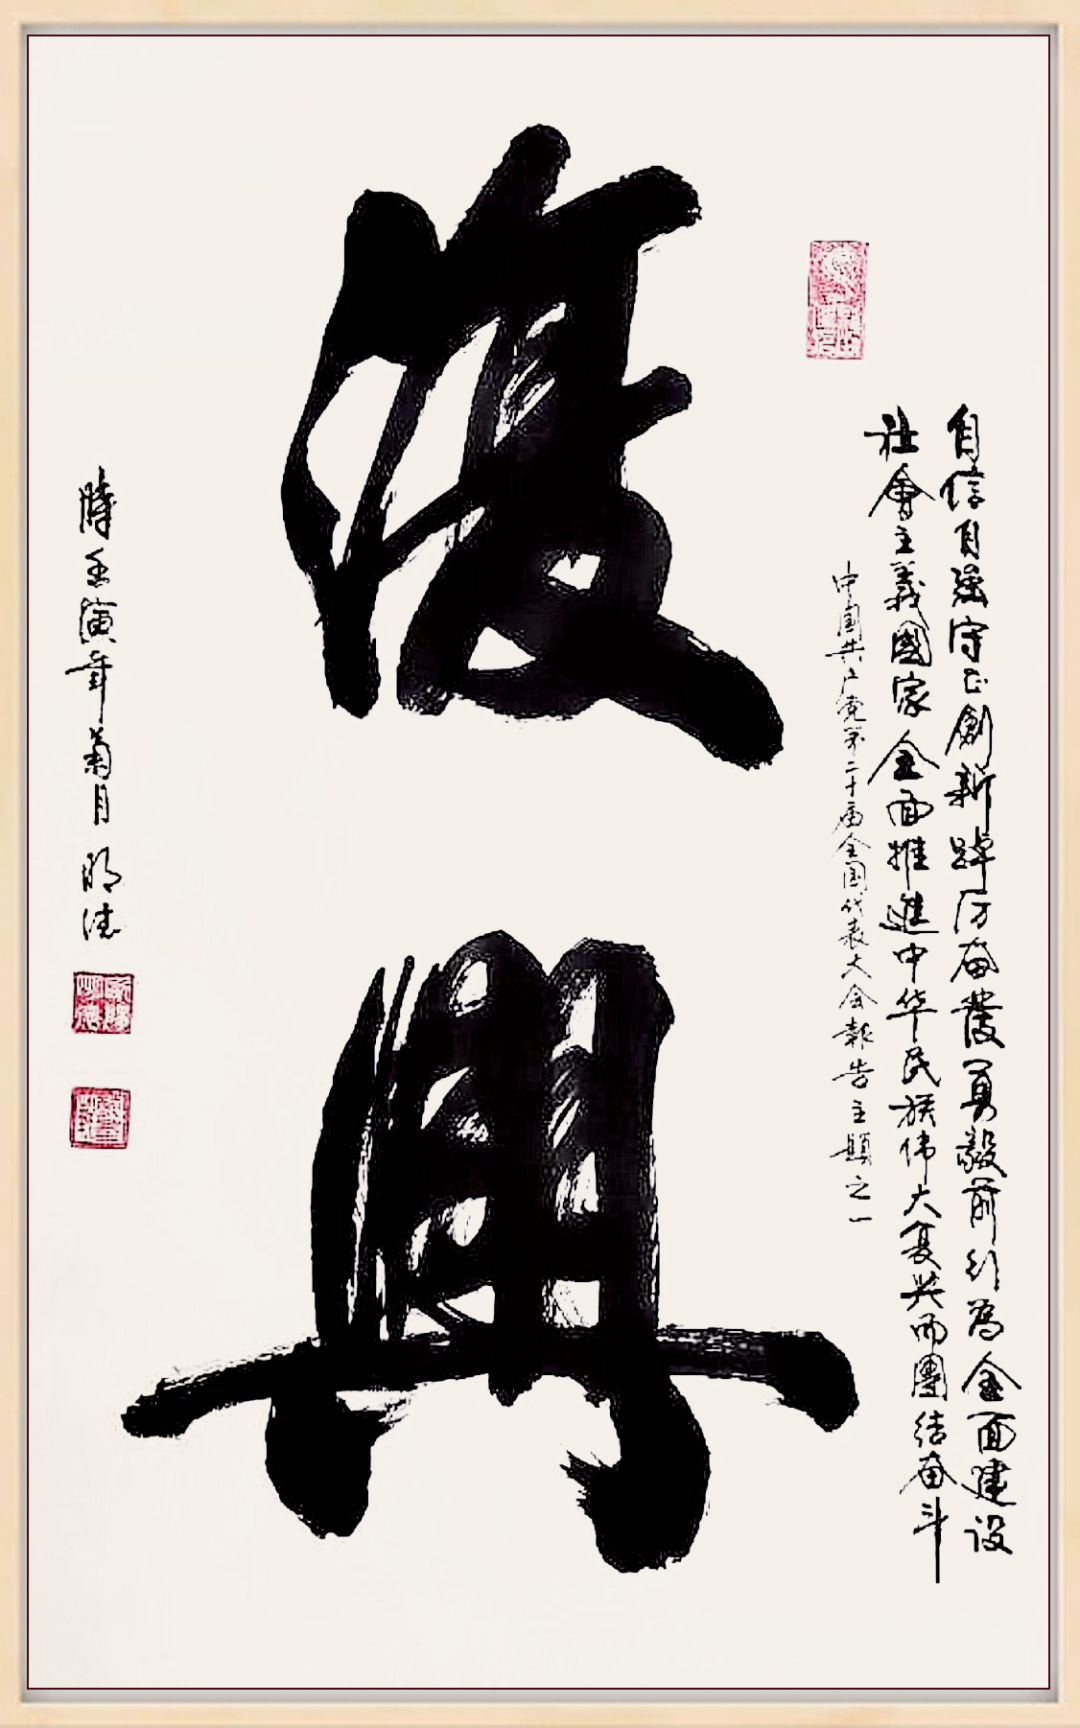 復興
自信自强守正創新踔厉奋發勇毅前行為全面建设
社會主義國家全面推進中华民族伟大复兴而團结奋斗
中国共产党第二十届全国代表大会報告主題之一
時壬寅年菊月明德